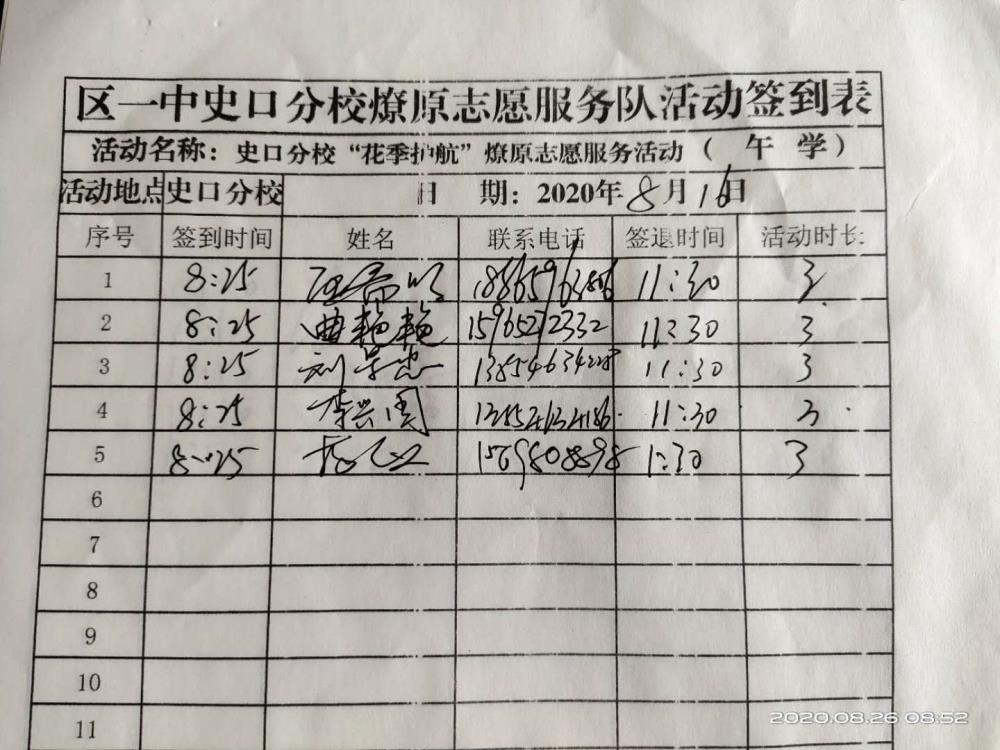 区一中史口分校燎原志愿服务队活动签到表
活动名称：史口分校“花季护航”燎原志愿服务活动（ 午 学）
活动地点 史口分校 日 期：2020年8月16日
序号 签到时间 姓名 联系电话 签退时间 活动时长
1 8:25 11:30 3
2 8:25 曲艳艳 15965272332 11:30 3
3 8:25 11:30 3
4 8:25 李兴国 11:30 3
5 8:25 1:30 3
6
7
8
9
10
11
2020.08.26 08:52